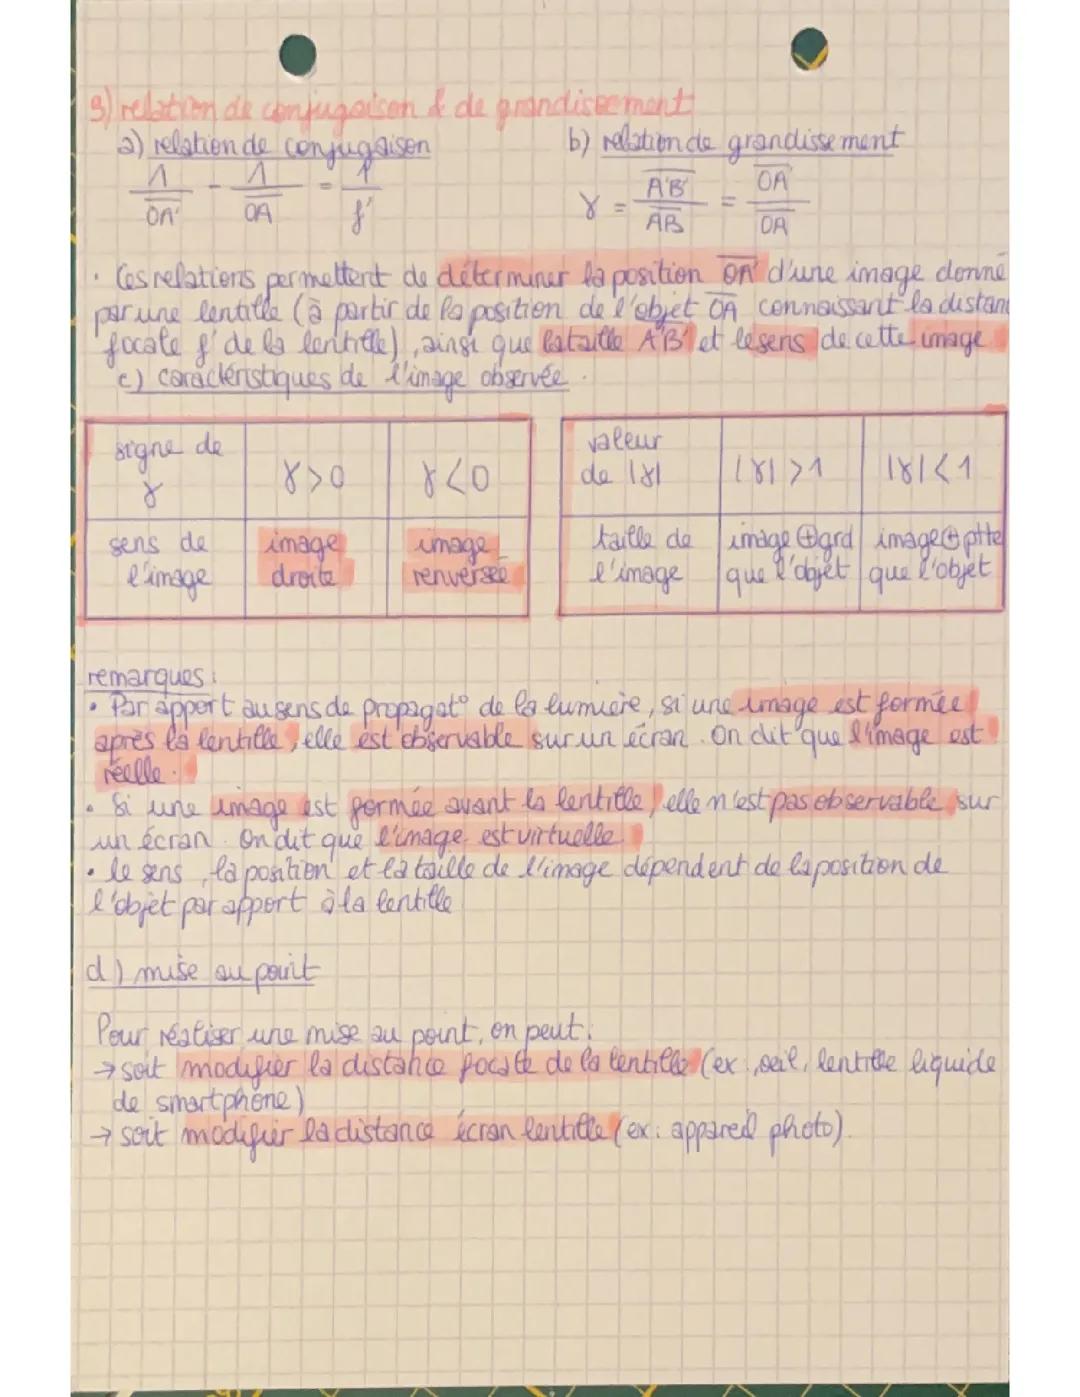 3) relation de conjugaison & de grandissement
a) relation de conjugaison
b) relation de grandissement
1/OA' - 1/OA = 1/f'
γ = A'B'/AB = OA'/OA
• Ces relations permettent de déterminer la position OA' d'une image donné
par une lentille (à partir de la position de l'objet OA connaissant la distan
focale f' de la lentille), ainsi que la taille A'B' et le sens de cette image
c) caractéristiques de l'image observée.
signe de γ | γ>0 | γ<0
sens de l'image | image droite | image renversée
valeur de |γ| | |γ|>1 | |γ|<1
taille de l'image | image ⊕ grd que l'objet | image ⊕ ptte que l'objet
remarques :
• Par apport au sens de propagat° de la lumière, si une image est formée
après la lentille, elle est observable sur un écran. On dit que l'image est
réelle.
• Si une image est formée avant la lentille, elle n'est pas observable sur
un écran. On dit que l'image est virtuelle.
• le sens, la position et la taille de l'image dépendent de la position de
l'objet par apport à la lentille
d) mise au point
Pour réaliser une mise au point, on peut :
→ soit modifier la distance focale de la lentille (ex : œil, lentille liquide
de smartphone)
→ soit modifier la distance écran lentille (ex : appareil photo).